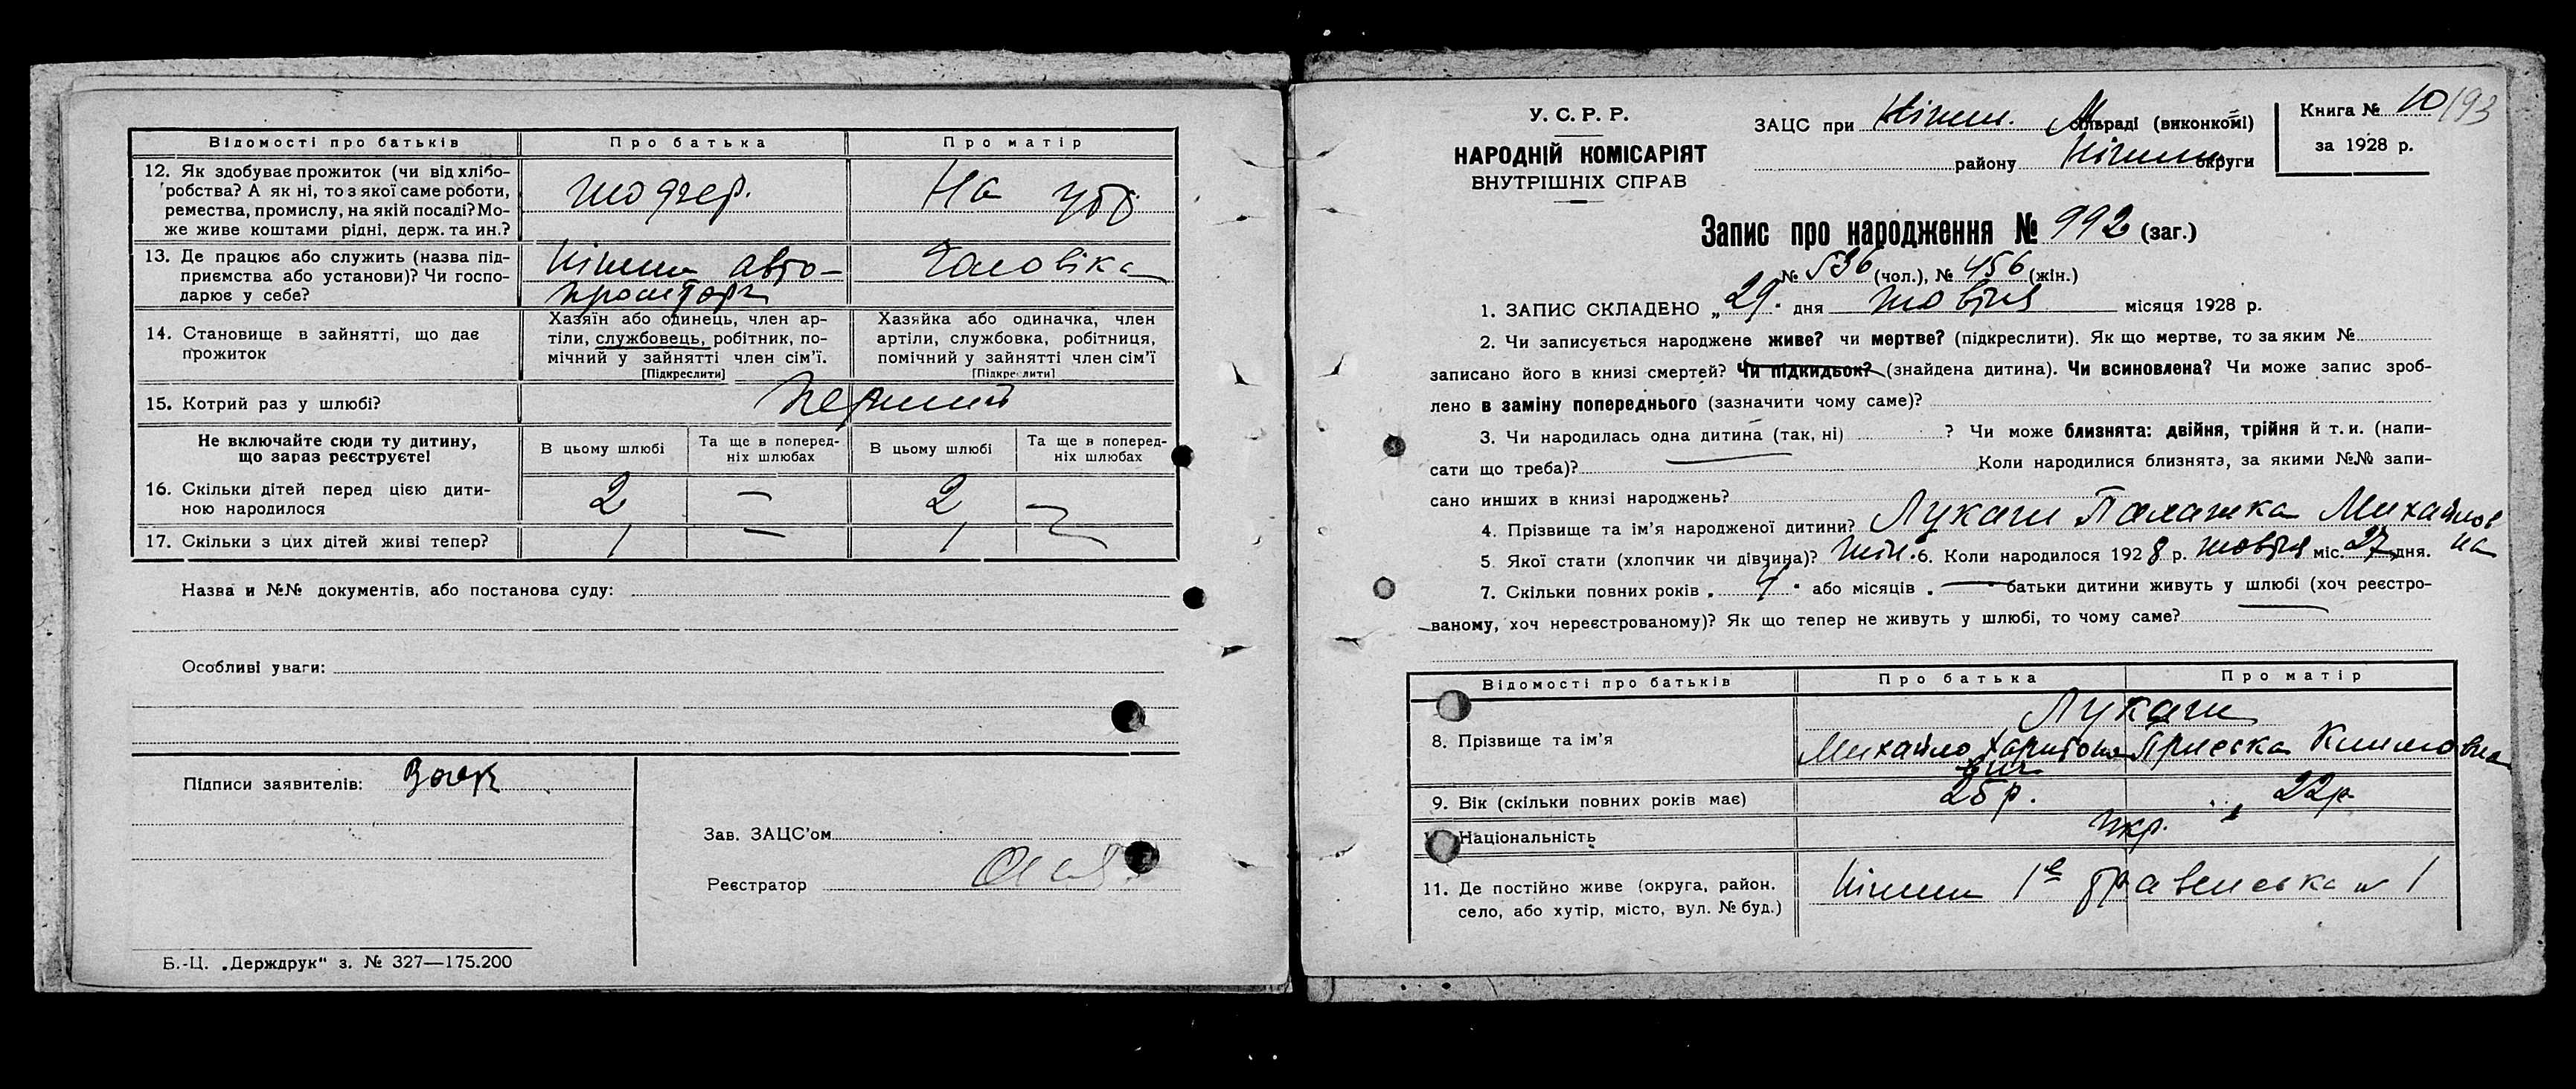 Відомості про батьків Про батька Про матір
12. Як здобуває прожиток (чи від хлібо-
робства? А як ні, то з якої саме роботи,
ремества, промислу, на якій посаді? Мо-
же живе коштами рідні, держ. та ин.?
шофер. На утр.
13. Де працює або служить (назва під-
приємства або установи)? Чи госпо-
дарює у себе?
Ніжин авто-
промторг
Чоловіка
14. Становище в зайнятті, що дає
прожиток
Хазяїн або одинець, член ар-
тіли, службовець, робітник, по-
мічний у зайнятті член сім'ї.
[Підкреслити]
Хазяйка або одиначка, член
артіли, службовка, робітниця,
помічний у зайнятті член сім'ї
[Підкреслити]
15. Котрий раз у шлюбі? Перший
Не включайте сюди ту дитину,
що зараз реєструєте!
В цьому шлюбі
Та ще в поперед-
ніх шлюбах
В цьому шлюбі
Та ще в поперед-
ніх шлюбах
16. Скільки дітей перед цією дити-
ною народилося
2 — 2 —
17. Скільки з цих дітей живі тепер? 1 — 1
Назва и №№ документів, або постанова суду:
Особливі уваги:
Підписи заявителів:
Зав. ЗАЦС'ом
Реєстратор
Б.-Ц. „Держдрук" з. № 327—175.200
У. С. Р. Р.
НАРОДНІЙ КОМІСАРІЯТ
ВНУТРІШНІХ СПРАВ
ЗАЦС при Ніжин. М сільраді (виконкомі)
району Ніжин округи
Книга № 10/93
за 1928 р.
Запис про народження № 992 (заг.)
№ 536 (чол.), № 456 (жін.)
1. ЗАПИС СКЛАДЕНО „29" дня жовтня місяця 1928 р.
2. Чи записується народжене живе? чи мертве? (підкреслити). Як що мертве, то за яким №
записано його в книзі смертей? Чи підкидьок? (знайдена дитина). Чи всиновлена? Чи може запис зроб-
лено в заміну попереднього (зазначити чому саме)?
3. Чи народилась одна дитина (так, ні) ? Чи може близнята: двійня, трійня й т. и. (напи-
сати що треба)? Коли народилися близнята, за якими №№ запи-
сано инших в книзі народжень?
4. Прізвище та ім'я народженої дитини? Лукаш Палажка Михайлов
на
5. Якої стати (хлопчик чи дівчина)? жін. 6. Коли народилося 1928 р. жовтня міс. 27 дня.
7. Скільки повних років „ 4 " або місяців „ — батьки дитини живуть у шлюбі (хоч реєстро-
ваному, хоч нереєстрованому)? Як що тепер не живуть у шлюбі, то чому саме?
Відомості про батьків Про батька Про матір
8. Прізвище та ім'я
Лукаш
Михайло Харитоно
вич
Приська Климовна
9. Вік (скільки повних років має) 25 р. 22 р
10. Національність Укр.
11. Де постійно живе (округа, район.
село, або хутір, місто, вул. № буд.)
Ніжин № 1